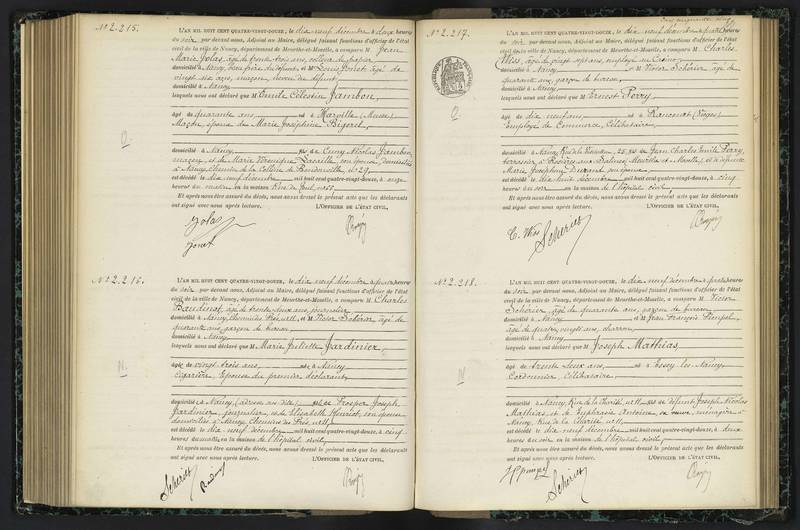 N° 2.215.
L'AN MIL HUIT CENT QUATRE-VINGT-DOUZE, le dix neuf décembre à deux heures
du soir par devant nous, Adjoint au Maire, délégué faisant fonctions d'officier de l'état
civil de la ville de Nancy, département de Meurthe-et-Moselle, a comparu M Jean
Marie Jolas, âgé de trente trois ans, colleur de papier
domicilié à Nancy, beau frère du défunt, et M Louis Jonet âgé de
vingt six ans, maçon, neveu du défunt
domicilié à Nancy
lesquels nous ont déclaré que M Emile Célestin Jambon,
âgé de quarante ans, né à Harville (Meuse)
Maçon, époux de Marie Joséphine Bigerel
domicilié à Nancy fils de Cuny Nicolas Jambon,
maçon et de Marie Véronique son épouse, domiciliés
à Nancy, Chemin de la Colline de Boudonville, n° 29,
est décédé le dix neuf décembre mil huit cent quatre-vingt-douze, à onze
heures du matin en la maison Rue de Toul, n° 55
Et après nous être assuré du décès, nous avons dressé le présent acte que les déclarants
ont signé avec nous après lecture. L'OFFICIER DE L'ÉTAT CIVIL,
Jolas
Jonet
N° 2.216.
L'AN MIL HUIT CENT QUATRE-VINGT-DOUZE, le dix neuf décembre à quatre heures
du soir, par devant nous, Adjoint au Maire, délégué faisant fonctions d'officier de l'état
civil de la ville de Nancy, département de Meurthe-et-Moselle, a comparu M Charles
Baudinat, âgé de trente deux ans, journalier
domicilié à Nancy, et M Victor Schérier, âgé de
quarante ans, garçon de bureau
domicilié à Nancy
lesquels nous ont déclaré que M Marie Juliette Jardinier,
âgée de vingt trois ans, née à Nancy
Cigarière, Epouse du premier déclarant
domiciliée à Nancy fille de Prosper Joseph
Jardinier, journalier et de Elisabeth Henriot, son épouse
domiciliés à Nancy
est décédée le dix neuf décembre mil huit cent quatre-vingt-douze, à cinq
heures du matin, en la maison de l'hôpital civil,
Et après nous être assuré du décès, nous avons dressé le présent acte que les déclarants
ont signé avec nous après lecture. L'OFFICIER DE L'ÉTAT CIVIL,
N° 2.217.
L'AN MIL HUIT CENT QUATRE-VINGT-DOUZE, le dix neuf décembre à quatre heures
du soir par devant nous, Adjoint au Maire, délégué faisant fonctions d'officier de l'état
civil de la ville de Nancy, département de Meurthe-et-Moselle, a comparu M Charles
Wiss, âgé de vingt sept ans, employé au Casino
domicilié à Nancy et M Victor Schérier âgé de
quarante ans, garçon de bureau,
domicilié à Nancy
lesquels nous ont déclaré que M Ernest Perry,
âgé de dix neuf ans, né à Rancourt (Vosges)
Employé de Commerce, Célibataire
domicilié à Nancy, 25, fils de Jean Charles Emile Perry,
terrassier à Rosières aux Salines (Meurthe et Moselle), et de défunte
Marie Joséphine Durand son épouse
est décédé le dix huit décembre mil huit cent quatre-vingt-douze, à cinq
heures du soir en la maison de l'hôpital civil,
Et après nous être assuré du décès, nous avons dressé le présent acte que les déclarants
ont signé avec nous après lecture. L'OFFICIER DE L'ÉTAT CIVIL,
C. Wiss
N° 2.218.
L'AN MIL HUIT CENT QUATRE-VINGT-DOUZE, le dix neuf décembre à quatre heures
du soir, par devant nous, Adjoint au Maire, délégué faisant fonctions d'officier de l'état
civil de la ville de Nancy, département de Meurthe-et-Moselle, a comparu M Victor
Schérier, âgé de quarante ans, garçon de bureau
domicilié à Nancy et M Jean François
âgé de quatre vingts ans, charron
domicilié à Nancy
lesquels nous ont déclaré que M Joseph Mathias,
âgé de trente deux ans, né à Essey les Nancy
Cordonnier, Célibataire
domicilié à Nancy, Rue de la Charité, n° 11, fils de défunt Joseph Nicolas
Mathias, et de Euphrasie Antoine, sa veuve, ménagère à
Nancy, Rue de la Charité n° 11
est décédé le dix neuf décembre mil huit cent quatre-vingt-douze, à deux
heures du soir en la maison de l'hôpital civil,
Et après nous être assuré du décès, nous avons dressé le présent acte que les déclarants
ont signé avec nous après lecture. L'OFFICIER DE L'ÉTAT CIVIL,